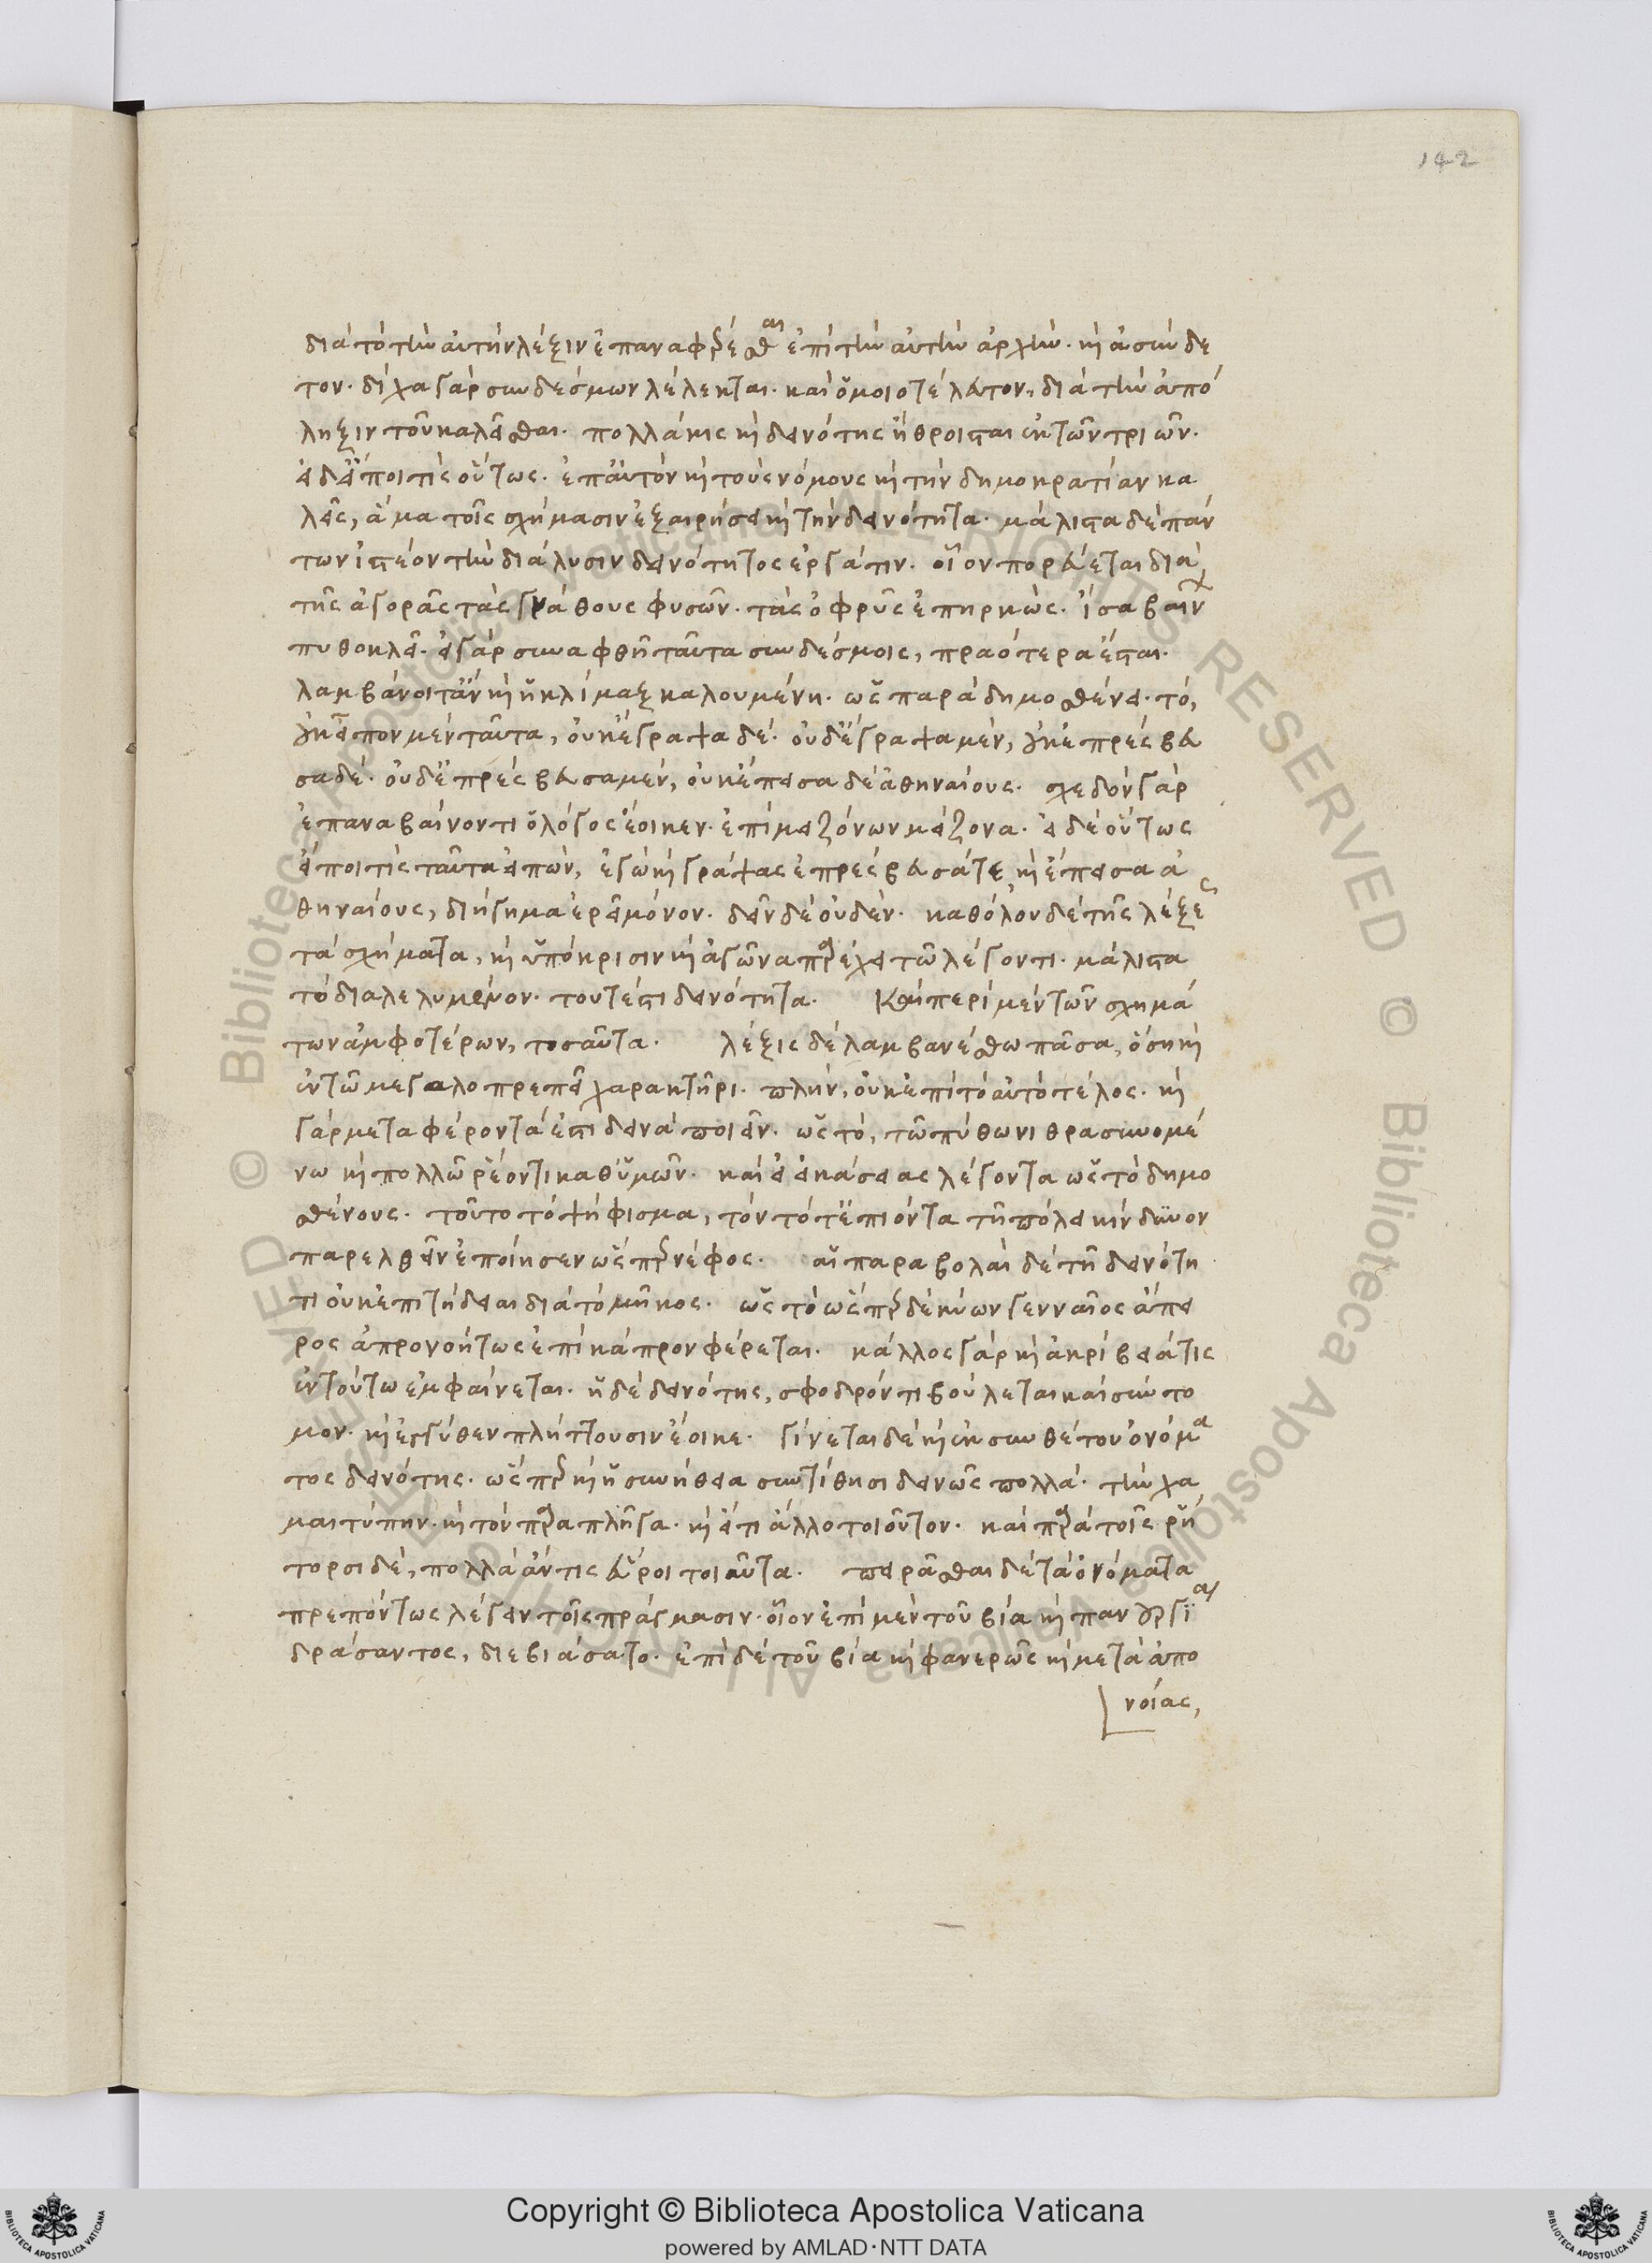 142
διὰ τὸ τὴν αὐτὴν λέξιν ἐπαναφέρεσθαι ἐπὶ τὴν αὐτὴν ἀρχήν. καὶ ἀσύνδε
τον. δίχα γὰρ συνδέσμων λέλεκται. καὶ ὁμοιοτέλευτον, διὰ τὴν ἀπό
ληξιν τοῦ καλεῖσθαι. πολλάκις καὶ δεινότης ἤθροισται ἐκ τῶν τριῶν.
εἰ δ' εἴποι τὶς οὕτως. ἐπ' αὐτὸν καὶ τοὺς νόμους καὶ τὴν δημοκρατίαν κα
λεῖς, ἅμα τοῖς σχήμασιν ἐξαιρήσει καὶ τὴν δεινότητα. μάλιστα δὲ πάν
των ἰστέον τὴν διάλυσιν δεινότητος ἐργάτιν. οἷον πορεύεται διὰ
τῆς ἀγορᾶς τὰς γνάθους φυσῶν. τὰς ὀφρῦς ἐπηρκώς. ἴσα βαίν
πυθοκλεῖ. εἰ γὰρ συναφθῆ ταῦτα συνδέσμοις, πραότερα ἔσται.
λαμβάνοιτ' ἂν καὶ ἡ κλίμαξ καλουμένη. ὡς παρὰ δημοσθένει. τὸ,
οὐκ εἶπον μὲν ταῦτα, οὐκ ἔγραψα δέ. οὐδ' ἔγραψα μὲν, οὐκ ἐπρέσβευ
σα δέ. οὐδ' ἐπρέσβευσα μὲν, οὐκ ἔπεισα δὲ ἀθηναίους. σχεδὸν γὰρ
ἐπαναβαίνοντι ὁ λόγος ἔοικεν. ἐπὶ μειζόνων μείζονα. εἰ δὲ οὕτως
εἴποι τὶς ταῦτα εἰπὼν, ἐγὼ καὶ γράψας ἐπρέσβευσά τε, καὶ ἔπεισα ἀ
θηναίους, διήγημα ἐρεῖ μόνον. δεῖν δὲ οὐδέν. καθόλου δὲ τῆς λέξες
τὰ σχήματα, καὶ ὑπόκρισιν καὶ ἀγῶνα παρέχει τῷ λέγοντι. μάλιστα
τὸ διαλελυμένον. τουτέστι δεινότητα. Καὶ περὶ μὲν τῶν σχημά
των ἀμφοτέρων, τοσαῦτα. λέξις δὲ λαμβανέσθω πᾶσα, ὅση καὶ
ἐν τῷ μεγαλοπρεπεῖ χαρακτῆρι. πλὴν, οὐκ ἐπὶ τὸ αὐτὸ τέλος. καὶ
γὰρ μεταφέροντά ἐστι δεινὰ ποιεῖν. ὡς τὸ, τῷ πύθωνι θρασυνομέ
νω καὶ πολλῶ ῥέοντι καθ' ὑμῶν. καὶ εἰ εἰκάσεις λέγοντα ὡς τὸ δημο
σθένους. τοῦτο τὸ ψήφισμα, τὸν τότ' ἐπιόντα τῆ πόλει κίνδυνον
παρελθεῖν ἐποίησεν ὥσπερ νέφος. αἱ παραβολαὶ δὲ τῆ δεινότη
τι οὐκ ἐπιτήδειαι διὰ τὸ μῆκος. ὡς τὸ ὥσπερ δὲ κύων γενναῖος ἄπει
ρος ἀπρονοήτως ἐπὶ κάπρον φέρεται. κάλλος γὰρ καὶ ἀκρίβειά τις
ἐν τούτω ἐμφαίνεται. ἡ δὲ δεινότης, σφοδρόν τι βούλεται καὶ σύντο
μον. καὶ ἐγγύθεν πλήττουσιν ἔοικε. γίνεται δὲ καὶ ἐκ συνθέτου ὀνόμα
τος δεινότης. ὥσπερ καὶ ἡ συνήθεια συντίθησι δεινῶς πολλά. τὴν χα
μαιτύπην. καὶ τὸν παραπλῆγα. καὶ εἴ τι ἄλλο τοιοῦτον. καὶ παρὰ τοῖς ῥή
τορσι δὲ, πολλὰ ἄν τις εὕροι τοιαῦτα. πειρᾶσθαι δὲ τὰ ὀνόματα
πρεπόντως λέγειν τοῖς πράγμασιν. οἷον ἐπὶ μὲν τοῦ βία καὶ πανουργία
δράσαντος, διεβιάσατο. ἐπὶ δὲ τοῦ βία καὶ φανερῶς καὶ μετὰ ἀπο
νοίας,
Copyright © Biblioteca Apostolica Vaticana
powered by AMLAD·NTT DATA